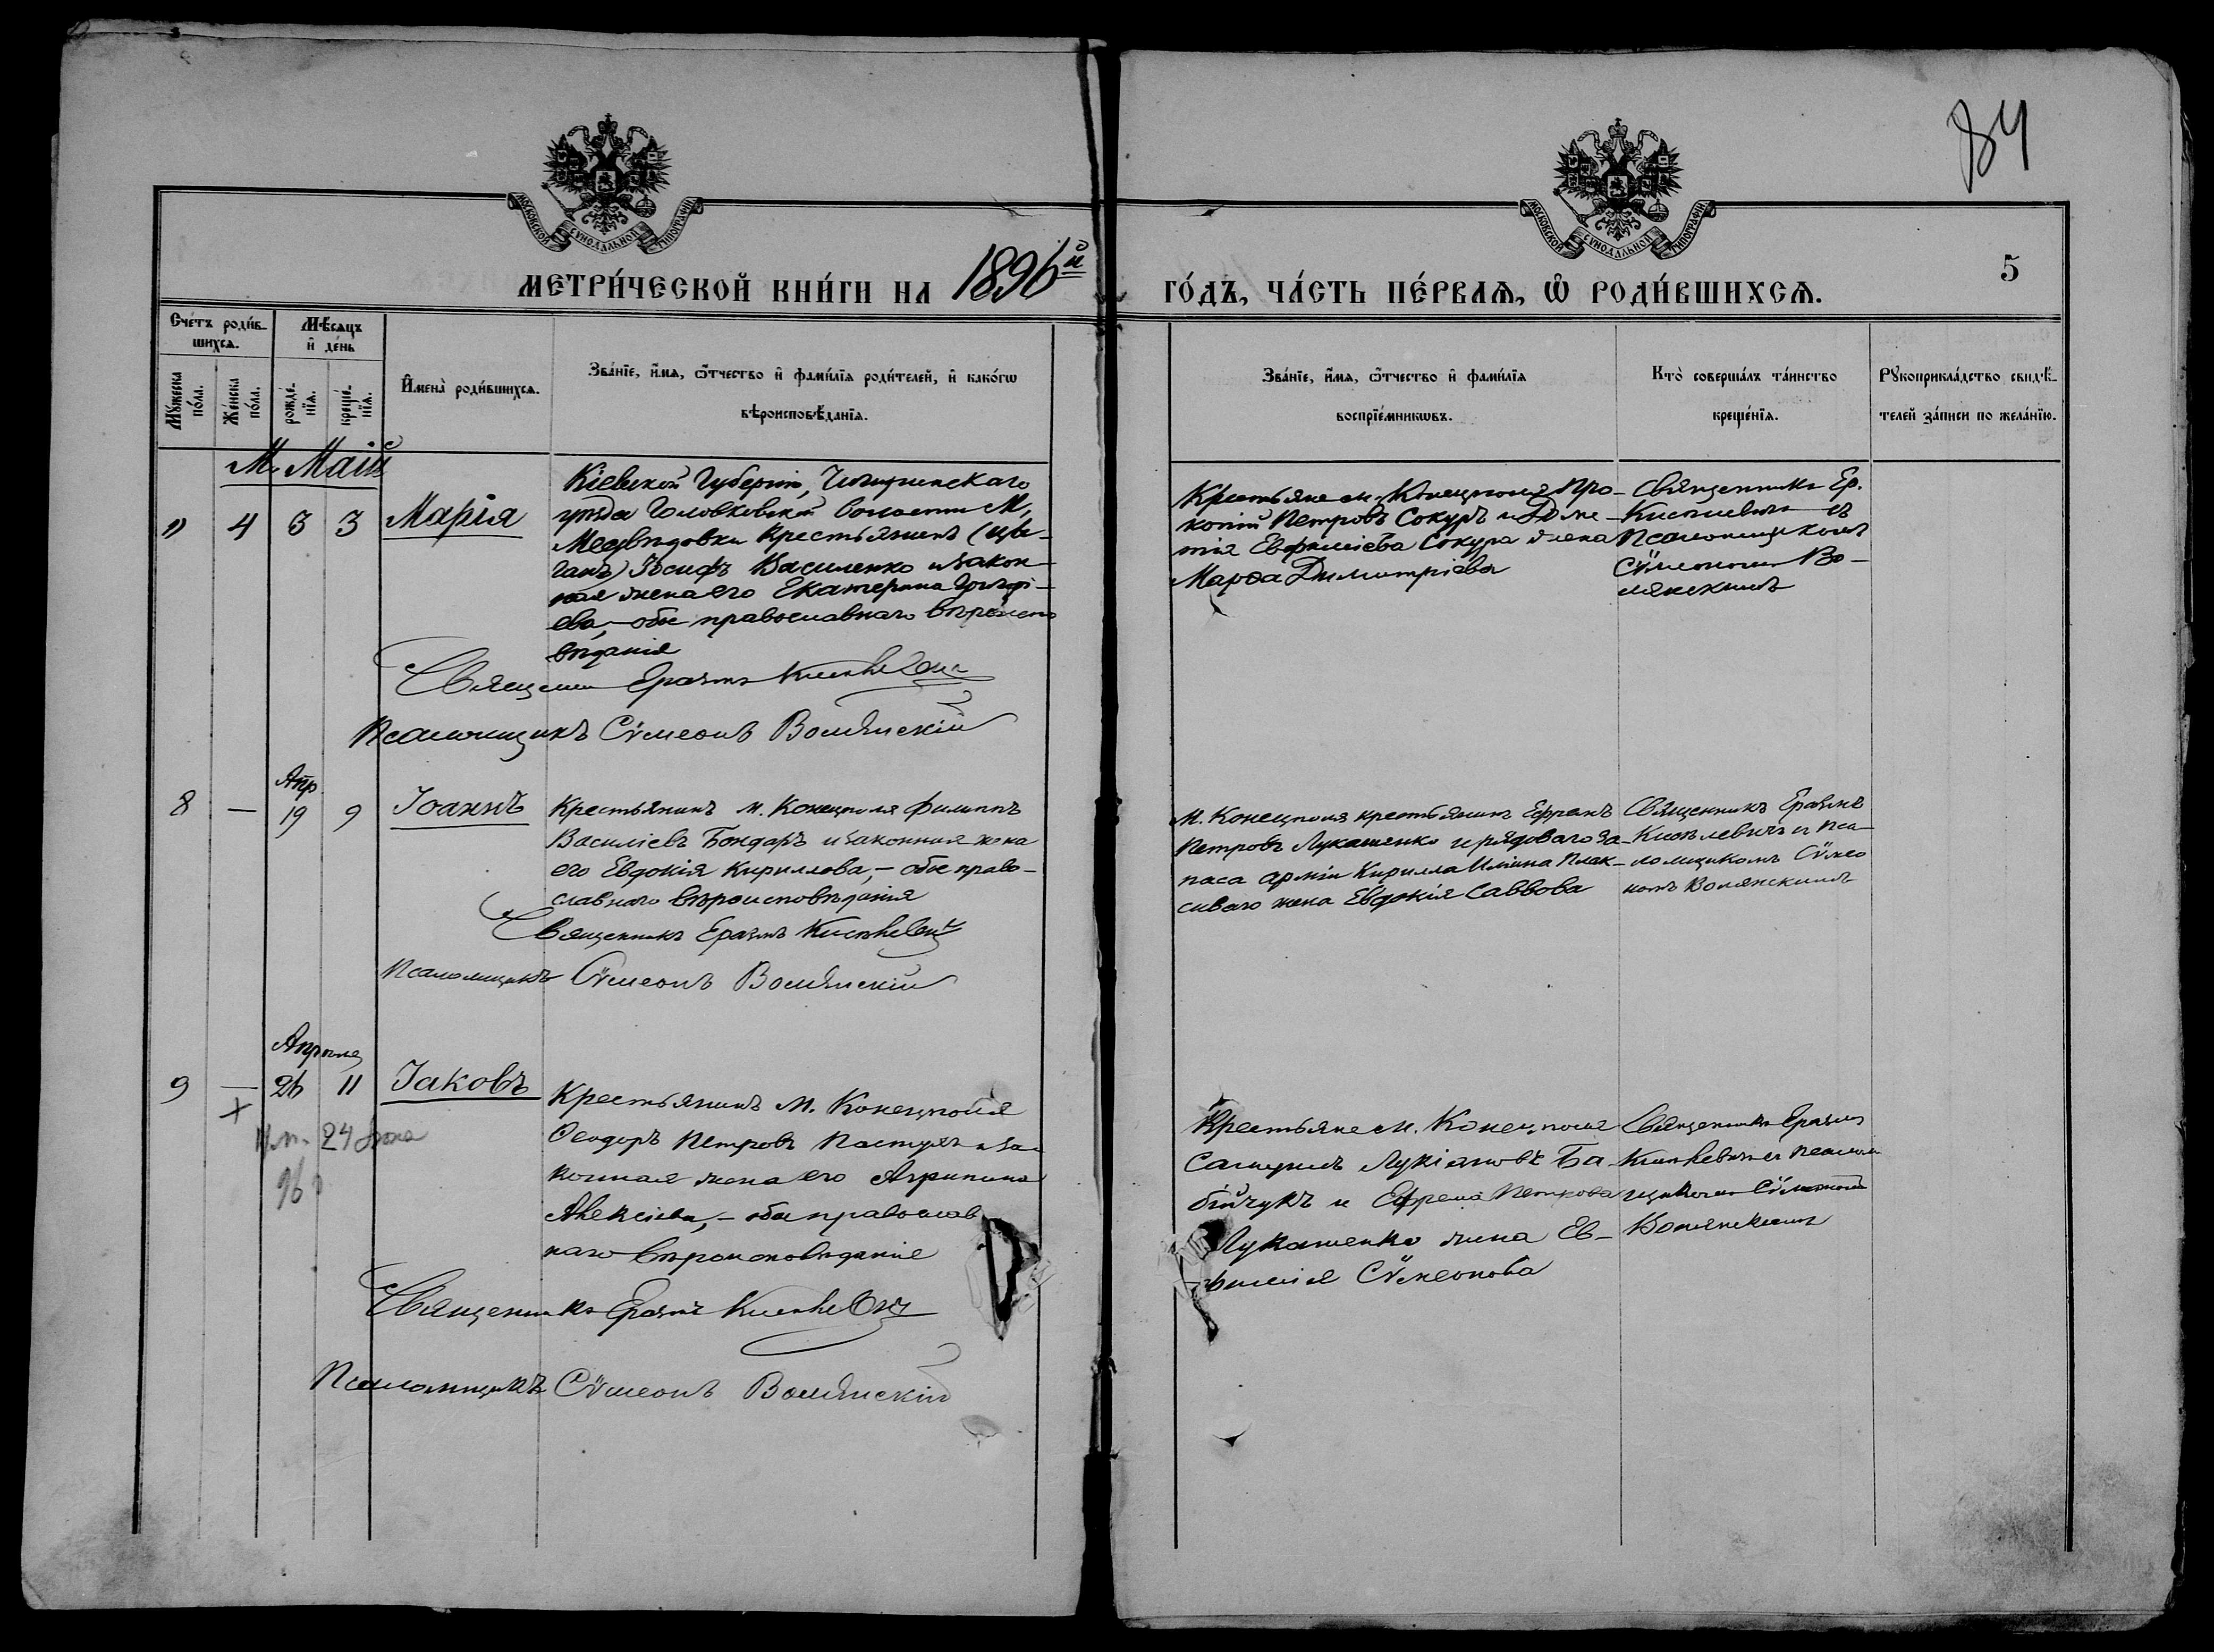 84
МОСКОВСКОЙ СѴНОДАЛЬНОЙ ТИПОГРАФІИ
МОСКОВСКОЙ СѴНОДАЛЬНОЙ ТИПОГРАФІИ
МЕТРИ́ЧЕСКОЙ КНИ́ГИ НА 1896й
ГО́ДЪ, ЧА́СТЬ ПЕ́РВАѦ, Ѡ҆ РОДИ́ВШИХСѦ.
5
Сче́тъ роди́в-
шихсѧ.
Мѣ́сѧцъ
и҆ де́нь
Мꙋ́жеска
по́ла.
Же́нска
по́ла.
рожде́-
нїѧ.
креще́-
нїѧ.
И҆мена̀ роди́вшихсѧ.
Зва́нїе, и҆́мѧ, ѻ҆́тчество и҆ фамѝлїѧ роди́телей, и҆ како́гѡ
вѣроисповѣ́данїѧ.
Зва́нїе, и҆́мѧ, ѻ҆́тчество и҆ фамѝлїѧ
воспрїе́мникѡвъ.
Кто̀ соверша́лъ та́инство
креще́нїѧ.
Рꙋкоприкла́дство свидѣ́-
телей за́писи по жела́нїю.
М. Май
" 4 3 3 Марія
Кіевской Губерніи, Чигиринскаго
уѣзда Головковской волости М,
Медвѣдовки Крестьянинъ (цы-
ганъ) Іосифъ Василенко и закон-
ная жена его Екатерина Григорі-
ева, - оба православнаго вѣроиспо
вѣданія
Крестьяне м. Конецполя Про-
копій Петровъ Сокуръ и
Евфиміева Сокура жена
Марфа Димитріева
Священникъ Ер.
Кисилевичъ съ
Псаломщикомъ
Сѵмеономъ Во-
лянскимъ
Священ Еразмъ Кисилевич
Псаломщикъ Сѵмеонъ Волянскій
Апр
8 — 19 9 Іоаннъ
Крестьянинъ м. Конецполя Филиппъ
Василіевъ Бондаръ и законная жена
его Евдокія Кириллова, - оба право-
славнаго вѣроисповѣданія
М. Конецполя крестьянинъ Ефремъ
Петровъ Лукашенко и рядоваго за-
паса арміи Кирилла Ильина Плак-
сиваго жена Евдокія Саввова
Священникъ Еразмъ
Кисилевичъ и пса-
ломщикомъ Сѵмео
номъ Волянскимъ
Священникъ Еразмъ Кисилевич
Псаломщикъ Сѵмеонъ Волянскій
Апрѣля
9 — 26 11 Іаковъ
24
96
Крестьянинъ м. Конецполя
Ѳеодоръ Петровъ Пастухъ и за-
конная жена его Агрипина
Алексіева, - оба православ
наго вѣроисповѣданія
Крестьяне м. Конецполя
Самуилъ Лукіановъ Ба-
бійчукъ и Ефрема Петрова
Лукашенко жена Ев-
фимія Сѵмеонова
Священникъ Еразмъ
Кисилевичъ съ псалом
щикомъ Сѵмеономъ
Волянскимъ
Священникъ Еразмъ Кисилевич
Псаломщикъ Сѵмеонъ Волянскій